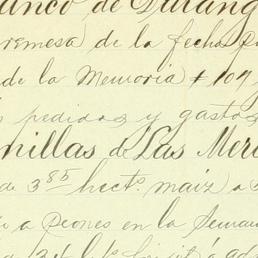 anco de Durang
remesa de la fecha p
de la Memoria # 109
pedidos y gastos
nillas de Las Mer
de 3 85 hects maiz a
a peones en la Seman